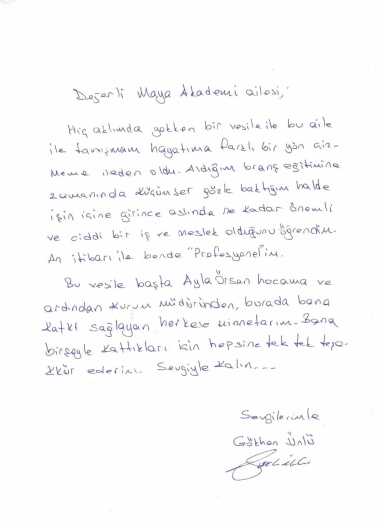 Değerli Maya Akademi ailesi,
Hiç aklımda yokken bir vesile ile bu aile
ile tanışmam hayatıma farklı bir yön çiz-
meme neden oldu. Aldığım branş eğitimine
zamanında küçümser gözle baktığım halde
işin içine girince aslında ne kadar önemli
ve ciddi bir iş ve meslek olduğunu öğrendim.
An itibarı ile bende "Profesyonel"im.
Bu vesile başta Ayla Örsan hocama ve
ardından kurum müdüründen, burada bana
katkı sağlayan herkese minnetarım. Bana
birşeyle kattıkları için hepsine tek tek teşe-
kkür ederim. Sevgiyle kalın...
Sevgilerimle
Gökhan Ünlü